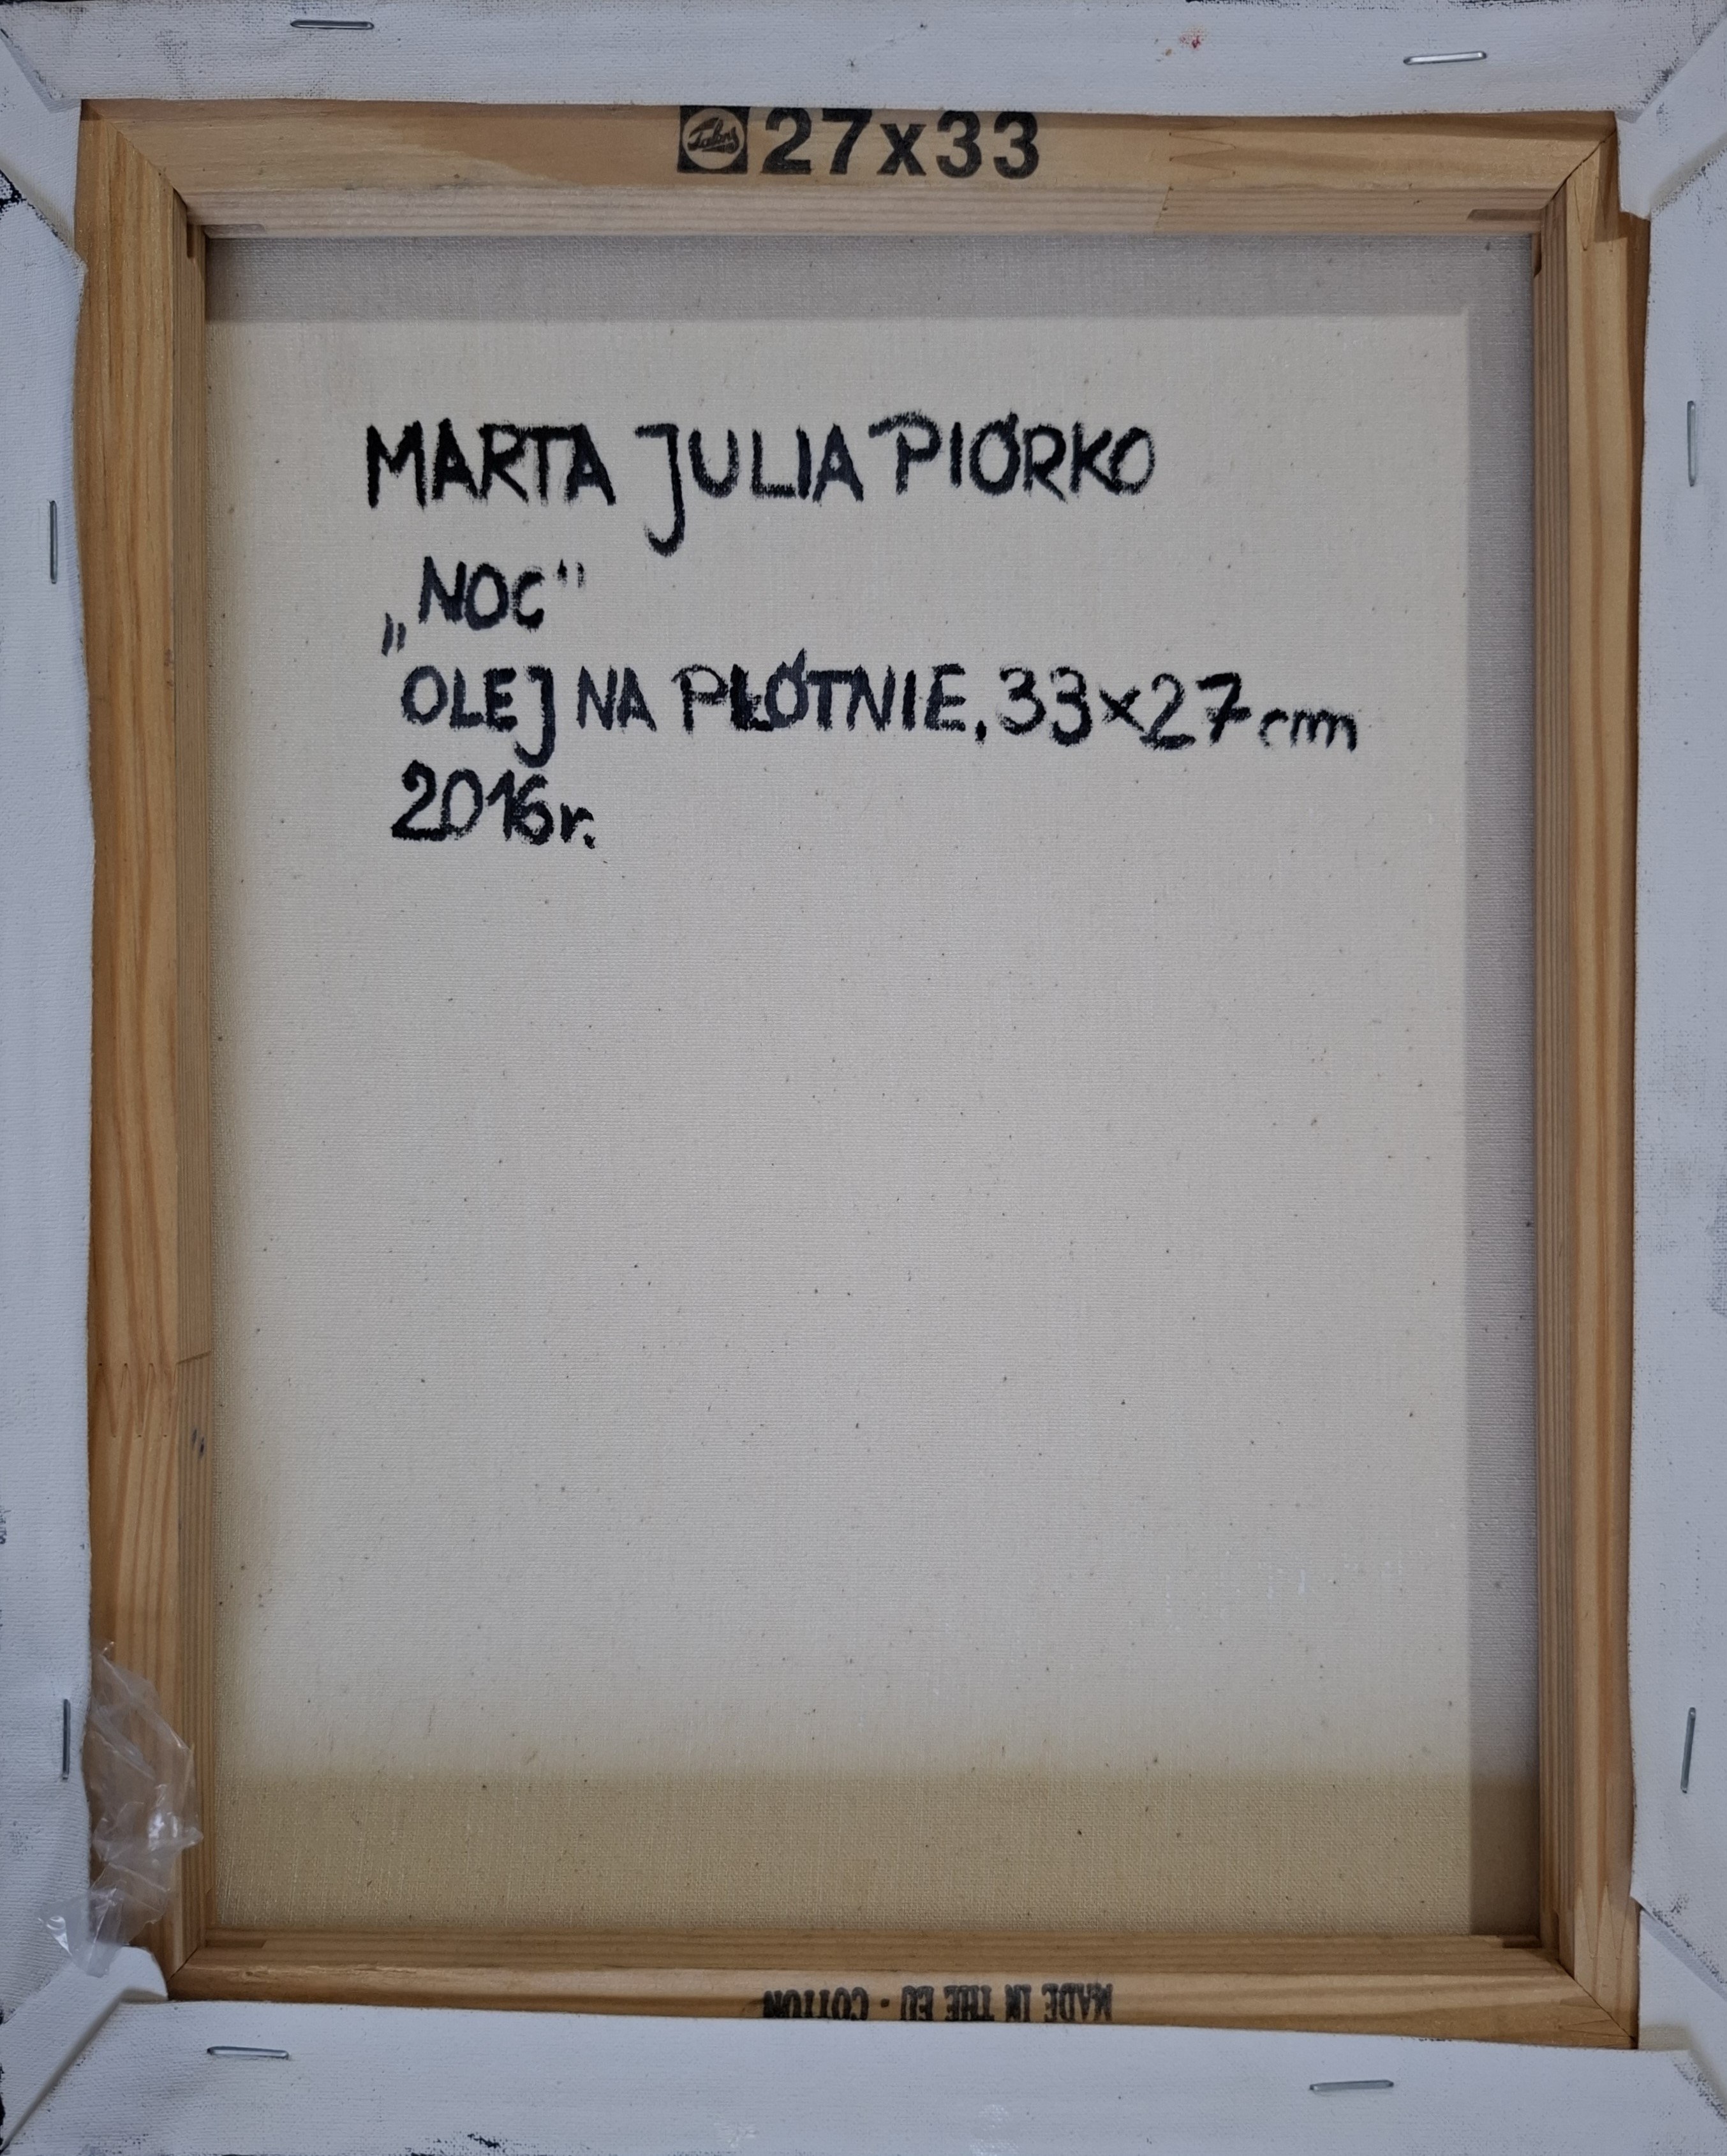 Talens 27x33
MARTA JULIA PIÓRKO
„NOC“
OLEJ NA PŁÓTNIE, 33x27cm
2016r.
MADE IN THE EU - COTTON